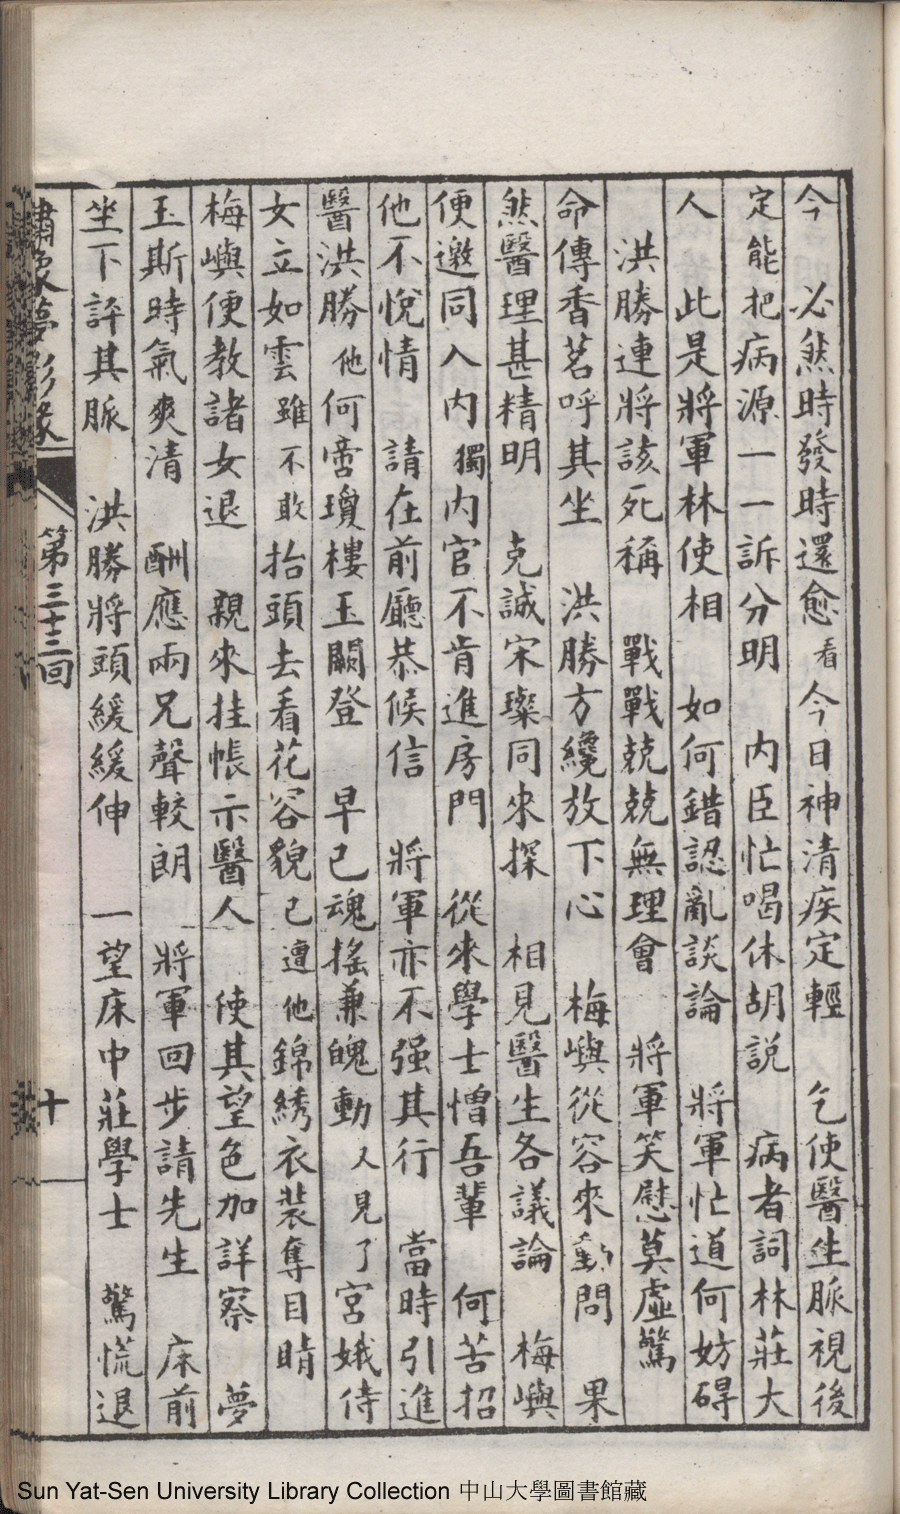 今　必然時發時還愈看今日神清疾定輕　乞使醫生脈視後
定能把病源一一訴分明　内臣忙喝休胡説　病者詞林莊大
人　此是將軍林使相　如何錯認亂談論　將軍忙道何妨碍
洪勝連將該死稱　戰戰兢兢無理會　將軍笑慰莫虚驚
命傳香茗呼其坐　洪勝方纔放下心　梅嶼從容來動問　果
然醫理甚精明　克誠宋璨同來探　相見醫生各議論　梅嶼
便邀同入内　獨内官不肯進房門　從來學士憎吾輩　何苦招
他不悅情　請在前廳恭候信　將軍亦不强其行　當時引進
醫洪勝他何啻瓊樓玉闕登　早已魂搖兼魄動　又見了宮娥侍
女立如雲雖不敢抬頭去看花容貌已遭他錦綉衣裝奪目睛
梅嶼便教諸女退　親來挂帳示醫人　使其望色加詳察　夢
玉斯時氣爽清　酬應兩兄聲較朗　將軍回步請先生　床前
坐下評其脈　洪勝將頭緩緩伸　一望床中莊學士　驚慌退
繡像夢影緣　第三十三回　十
Sun Yat-Sen University Library Collection 中山大學圖書館藏